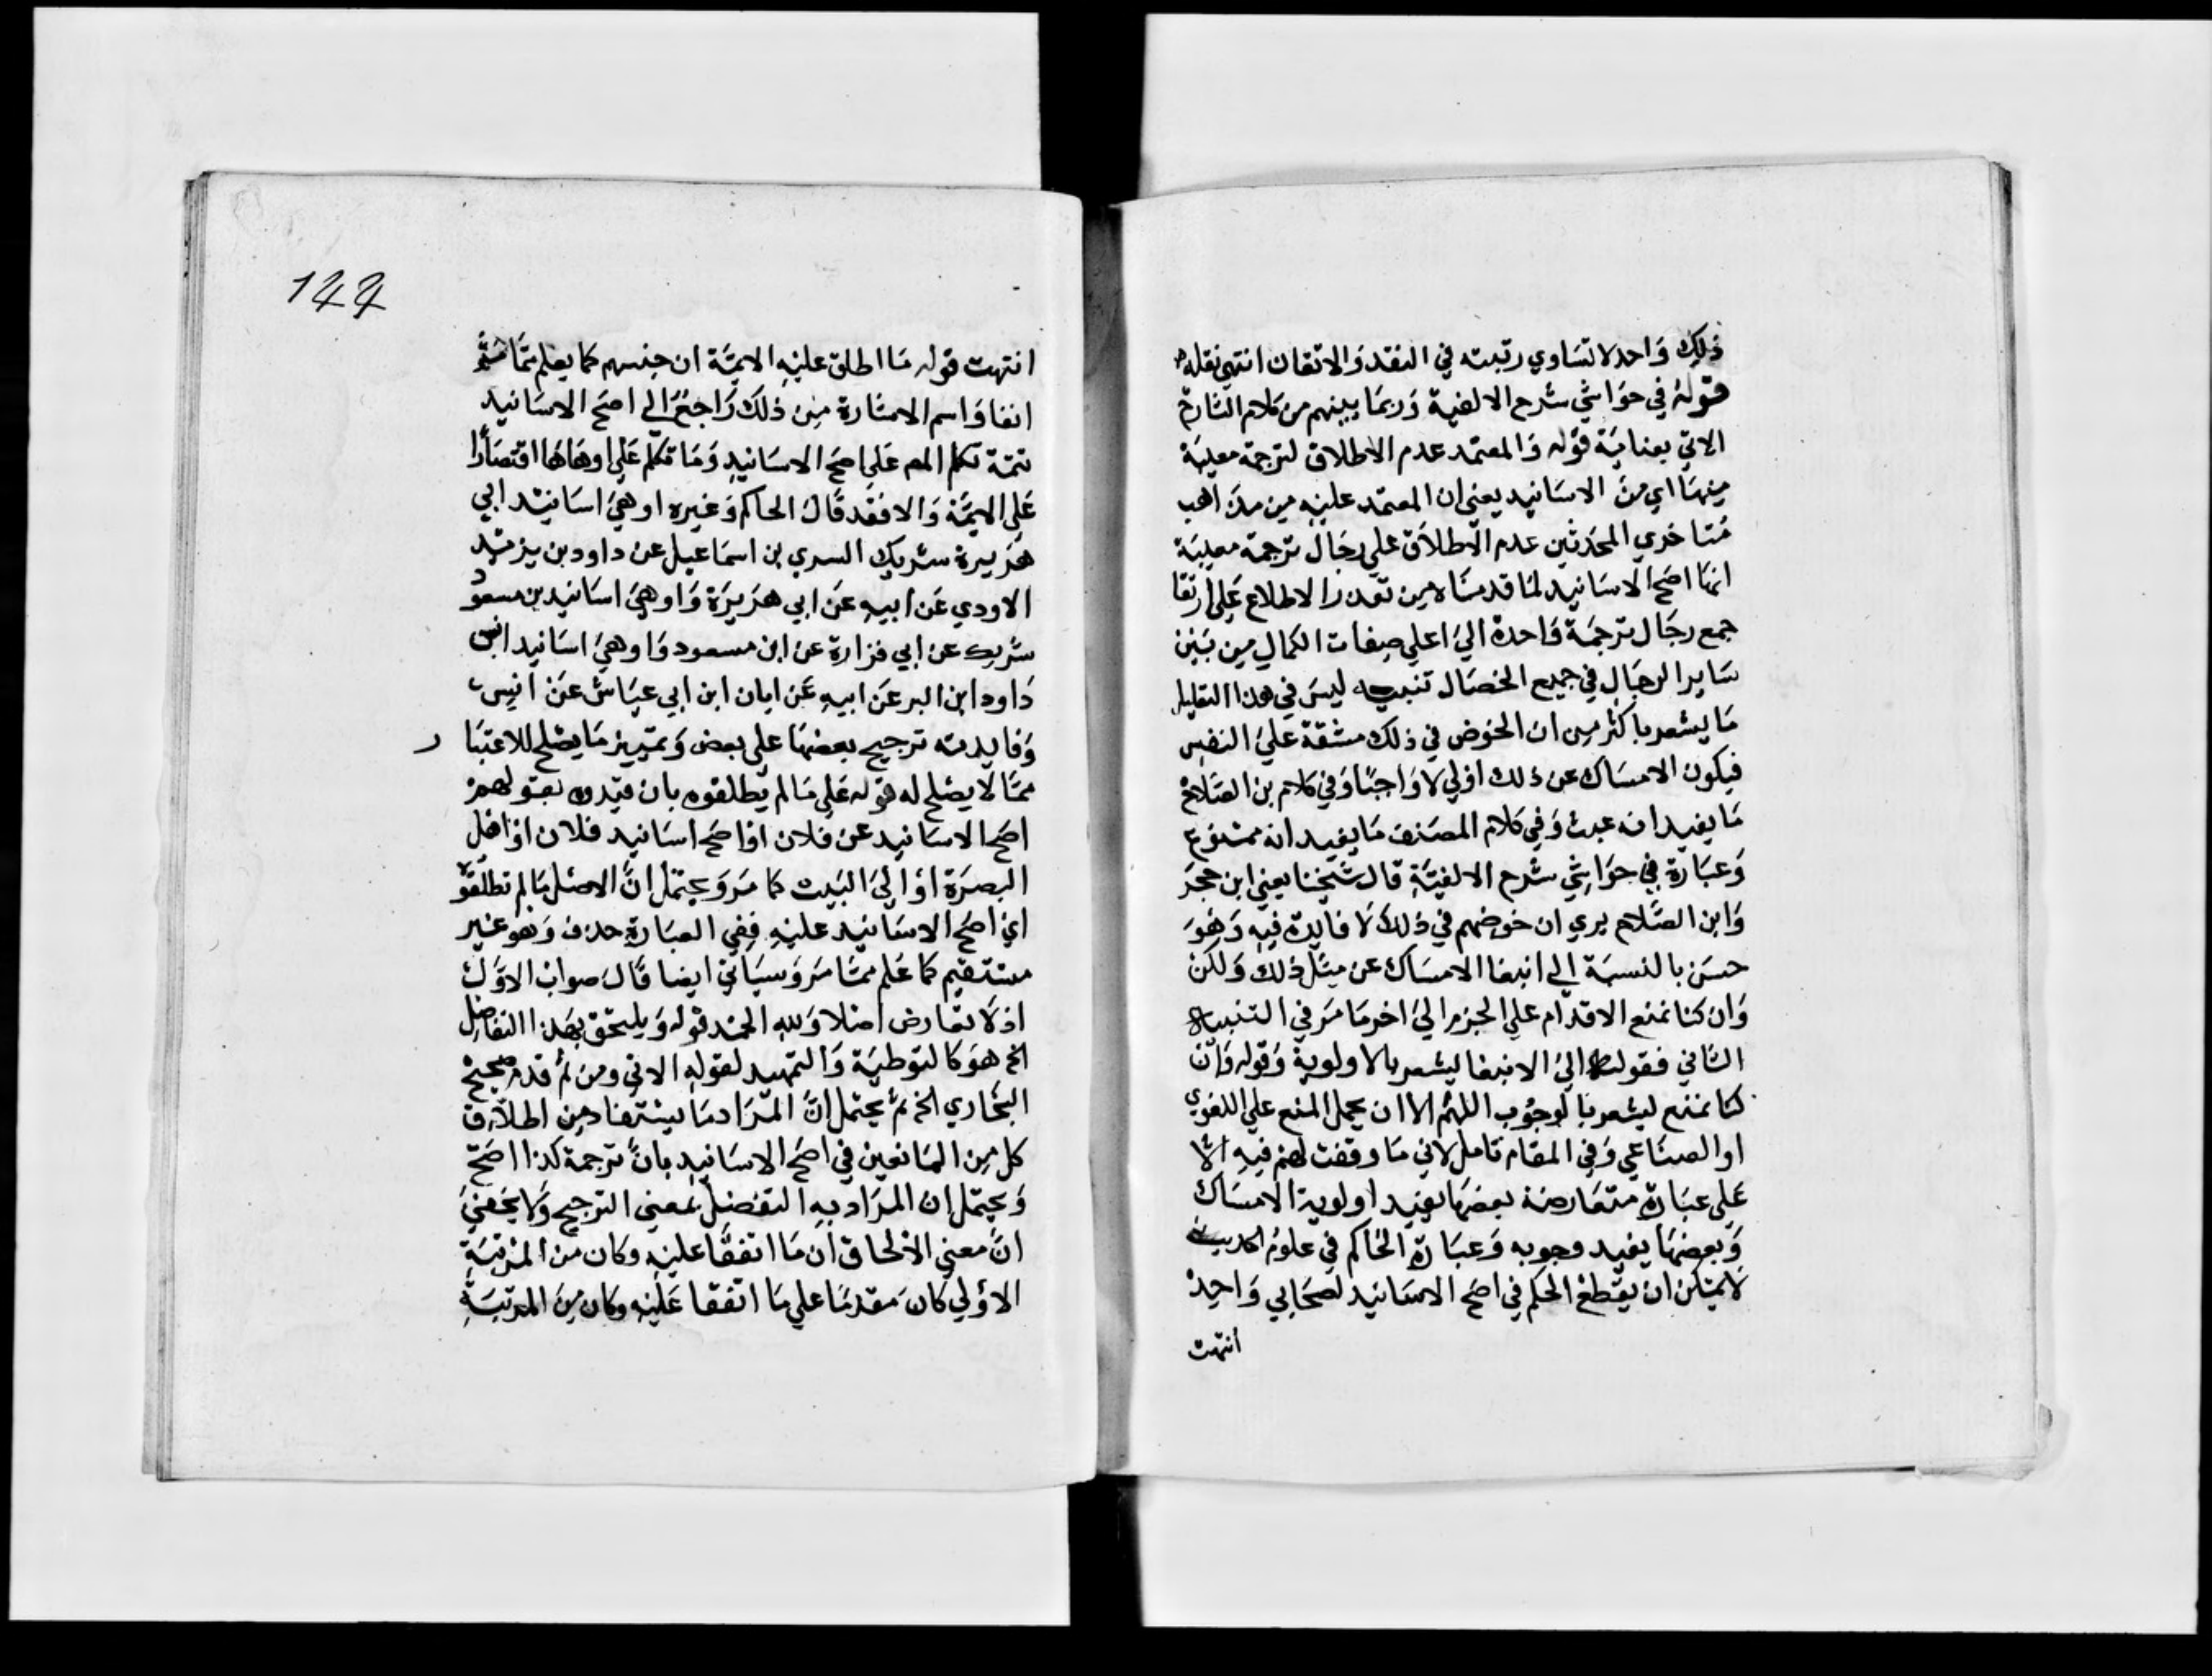 ذلك واحد لا تساوي رتبته في النقد والاتقان انتهي نقله
قوله في حواشي شرح الالفية وربما يبينهم من كلام الشارح
الاتي بعناية قوله والمعتمد عدم الاطلاق لترجمة معينة
منها اي من الاسانيد يعني ان المعتمد عليه من مذاهب
متاخري المحدثين عدم الاطلاق علي رجال ترجمة معينة
انها اصح الاسانيد لما قدمناه من تعذر الاطلاع علي ارتقا
جمع رجال ترجمة واحدة الي اعلي صفات الكمال من بين
ساير الرجال في جميع الخصال تنبيه ليس في هذا التعليل
ما يشعر باكثر من ان الخوض في ذلك مشقة علي النفس
فيكون الامساك عن ذلك اولي لا واجبا وفي كلام بن الصلاح
ما يفيد انه عبث وفي كلام المصنف ما يفيد انه ممنوع
وعبارة في حواشي شرح الالفية قال شيخنا يعني ابن حجر
وابن الصلاح يري ان خوضهم في ذلك لا فايدة فيه وهو
حسن بالنسبة الي انبغا الامساك عن مثل ذلك ولكن
وان كنا نمنع الاقدام علي الجزم الي اخر ما مر في التنبيه
الثاني فقوله الي الانبغا ليشعر بالاولوية وقوله وان
كنا نمنع ليشعر بالوجوب اللهم الا ان يحمل المنع علي اللغوي
او الصناعي وفي المقام تامل لاني ما وقفت لهم فيه الا
علي عبارة متعارضة بعضها يفيد اولوية الامساك
وبعضها يفيد وجوبه وعبارة الحاكم في علوم الحديث
لا يمكن ان يقطع الحكم في اصح الاسانيد لصحابي واحد
انتهت
144
انتهت قوله ما اطلق عليه الايمة ان جنسهم كما يعلم مما
انفا واسم الاشارة من ذلك راجع الي اصح الاسانيد
تتمة تكلم المص علي اصح الاسانيد وما تكلم علي اوهاها اقتصارا
علي الايمة والا فقد قال الحاكم وغيره اوهي اسانيد ابي
هريرة شريك السري بن اسماعيل عن داود بن يزيد
الاودي عن ابيه عن ابي هريرة واوهي اسانيد بن مسعود
شريك عن ابي فزارة عن ابن مسعود واوهي اسانيد انس
داود ابن البر عن ابيه عن ابان ابن ابي عياش عن انس
وفايدته ترجيح بعضها علي بعض وتمييز ما يصلح للاعتبا ر
مما لا يصلح له قوله علي ما لم يطلقوه بان قيدوه بقولهم
اصح الاسانيد عن فلان او اصح اسانيد فلان او اهل
البصرة او الي البيت كما مر ويحتمل ان الاصل ما لم تطلقوا
اي اصح الاسانيد عليه ففي العبارة حذف وهو غير
مستقيم كما علم مما مر وسياتي ايضا قال صواب الاول
اذ لا تعارض اصلا ولله الحمد قوله ويلتحق بهذا التفاضل
الخ هو كالتوطية والتمهيد لقوله الاتي ومن ثم قدم صحيح
البخاري الخ ثم يحتمل ان المراد ما يستفاد من اطلاق
كل من المانعين في اصح الاسانيد بان ترجمة كذا اصح
ويحتمل ان المراد به التفضيل بمعني الترجيح ولا يخفي
ان معني الالحاق ان ما اتفقا عليه وكان من المرتبة
الاولي كان مقدما علي ما اتفقا عليه وكان من المرتبة